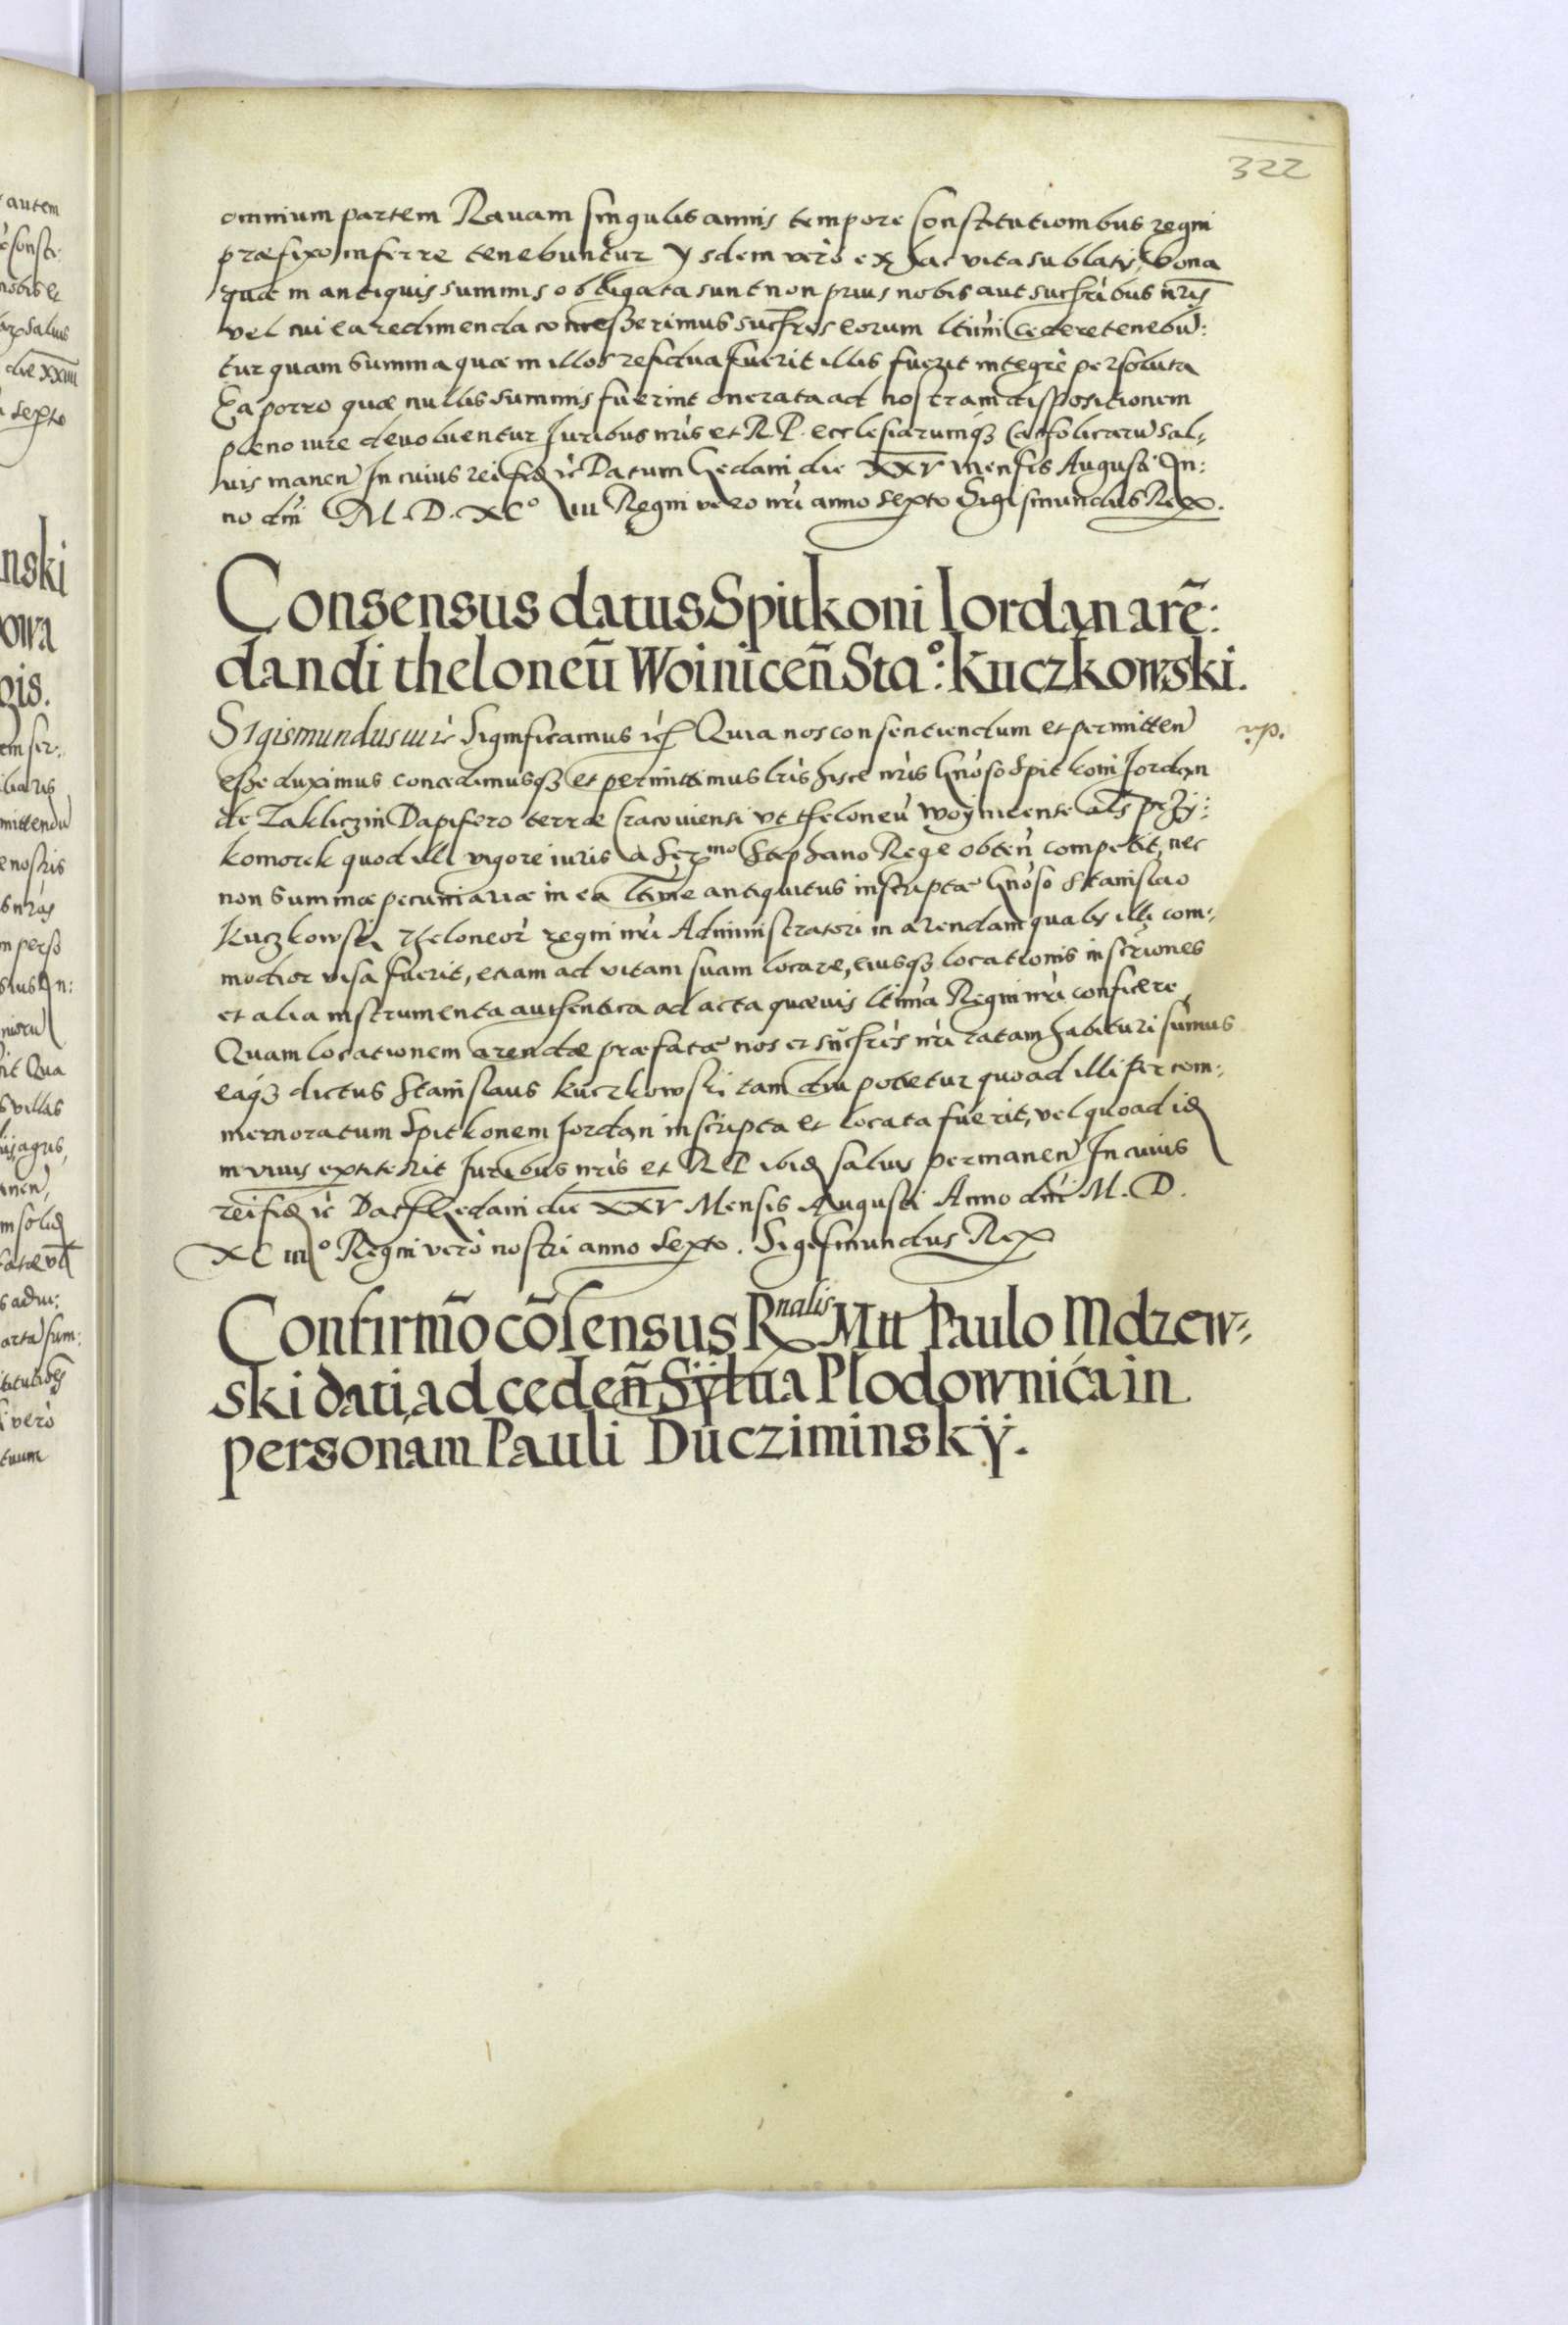 322
omnium partem Rauam singulis annis tempore constitutionibus regni
præfixo inferre tenebuntur Ysdem verò ex hac vita sublatis, bona
quæ in antiquis summis obligata sunt non prius nobis aut succrībus nrīs
vel cui ea redimenda concesserimus succrēs eorum ltīmi cedere tenebū:
tur quam summa quæ in illos residua fuerit illis fuerit integrè persoluta
Ea porro quæ nullis summis fuerint onerata ad nostram dispositionem
pleno iure devoluentur Juribus nrīs et R.P. ecclesiarumqȝ Catholicarū sal,
vis manen̄ In cuius rei fidē ic̄ Datum Gedani die XXV mensis Augusti An:
no dnī M.D.XC° iii Regni vero nrī anno sexto Sigismundus Rex.
Consensus datus Spitkoni Iordan arē:
dandi theloneū Woinicen̄ Sta°: Kuczkowski.
Sigismundus iii ic̄ Significamus ic̄ Quia nos consentiendum et permitten̄
esse duximus concedimusqȝ et permittimus lrīs hisce nrīs Gnōso Spitkoni Jordan
de Zakliczin Dapifero terræ Cracouiensi vt theloneū Woynicense als przÿ:
komorek quod illi vigore iuris a Serᵐᵒ Stephano Rege obten̄ competit, nec
non summæ pecuniariæ in ea ltīme antiquitus inscriptæ Gnōso Stanislao
Kuczkowski Theloneor̄ regni nrī Administratori in arendam qualis illi com:
modior visa fuerit, etiam ad vitam suam locare, eiusqȝ locationis inscrīones
et alia instrumenta authentica ad acta quævis ltīma Regni nrī conficere
Quam locationem arendæ præfatæ nos et succrēs nrī ratam habituri sumus
eaqȝ dictus Stanislaus Kuczkowski tam diu potietur quoad illi per com:
memoratum Spitkonem Jordan inscripta et locata fuerit, vel quoad idē
in viuis extiterit Juribus nrīs et R P ibidē saluis permanen̄ In cuius
rei fidē ic̄ Dat Gedani die XXV Mensis Augusti Anno dnī M.D.
XC iii° Regni verò nostri anno sexto. Sigismundus Rex
Confirmō cōsensus Rⁿᵃˡⁱˢ Mtt Paulo Mdzew:
ski dati, ad ceden̄ Sÿlua Plodownića in
personam Pauli Ducziminskÿ.